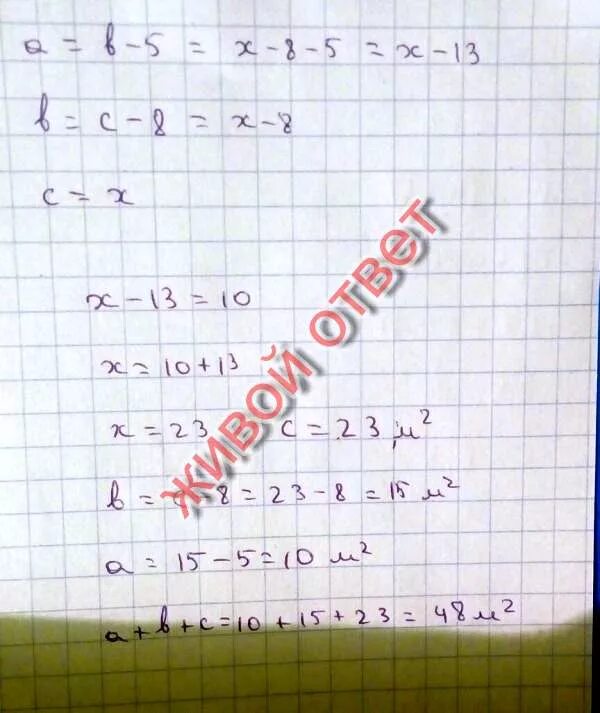 a = b - 5 = x - 8 - 5 = x - 13
b = c - 8 = x - 8
c = x
x - 13 = 10
x = 10 + 13
x = 23 c = 23 м²
b = c - 8 = 23 - 8 = 15 м²
a = 15 - 5 = 10 м²
a + b + c = 10 + 15 + 23 = 48 м²
ЖИВОЙ ОТВЕТ